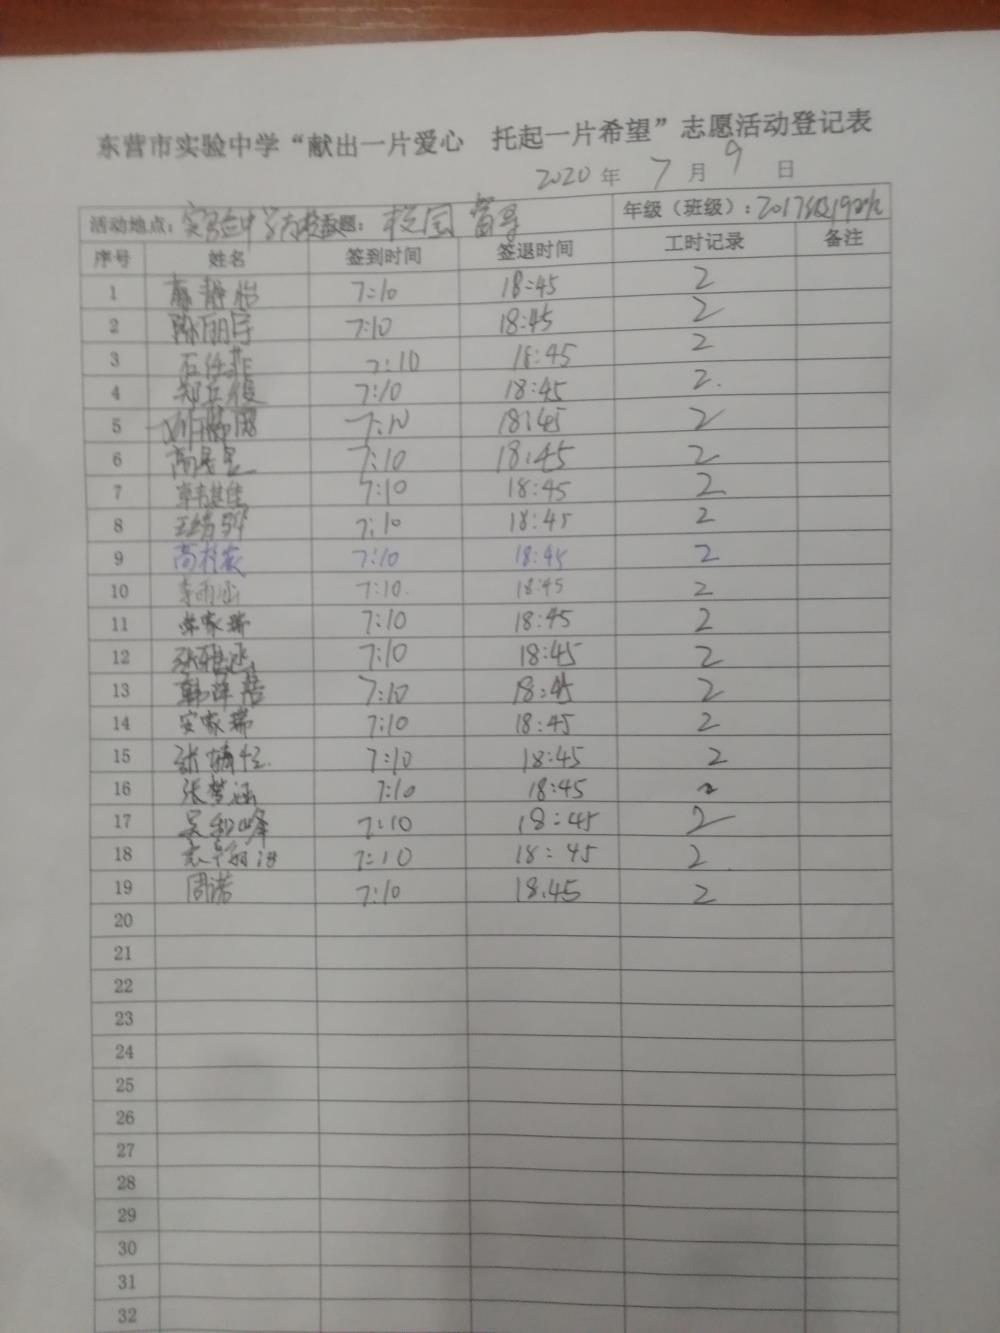 东营市实验中学“献出一片爱心 托起一片希望”志愿活动登记表
2020年 7月 9日
活动地点：实验中学南校 主题：校园督导 年级（班级）：2017级19班
序号 姓名 签到时间 签退时间 工时记录 备注
1 静怡 7:10 18:45 2
2 7:10 18:45 2
3 石佳菲 7:10 18:45 2
4 郑 7:10 18:45 2
5 7:10 18:45 2
6 高 7:10 18:45 2
7 7:10 18:45 2
8 王 7:10 18:45 2
9 高 7:10 18:45 2
10 李雨涵 7:10. 18:45 2
11 家瑞 7:10 18:45 2
12 张雅涵 7:10 18:45 2
13 韩泽 7:10 18:45 2
14 安家瑞 7:10 18:45 2
15 张 7:10 18:45 2
16 张梦涵 7:10 18:45 2
17 吴 峰 7:10 18:45 2
18 7:10 18:45 2
19 周诺 7:10 18.45 2
20
21
22
23
24
25
26
27
28
29
30
31
32